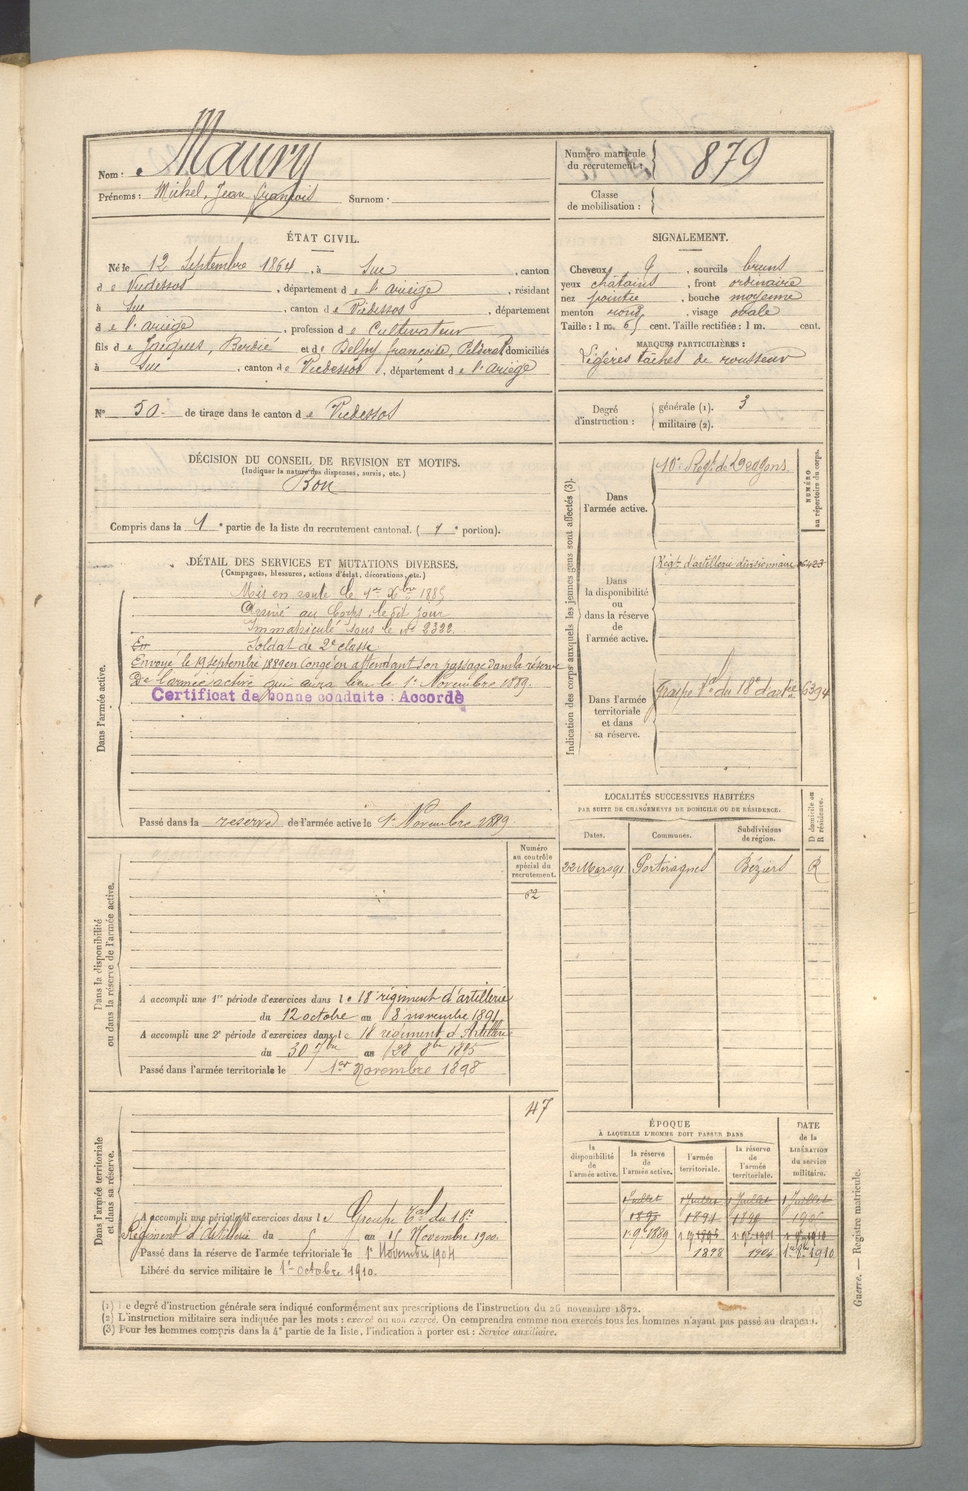 Nom : Maury
Prénoms : Michel, Jean François Surnom :
Numéro matricule du recrutement : 879
Classe de mobilisation :
ÉTAT CIVIL.
Né le 12 Septembre 1864, à Suc, canton
de Vicdessos, département de l'ariège, résidant
à Suc, canton de Vicdessos, département
de l'ariège, profession de Cultivateur
fils de Jacques, et de Delphy françoise, domiciliés
à Suc, canton de Vicdessos, département de l'ariège
N° 50 de tirage dans le canton de Vicdessos
SIGNALEMENT.
Cheveux, sourcils bruns
yeux chatains, front ordinaire
nez pointu, bouche moyenne
menton rond, visage ovale
Taille : 1 m. 65 cent. Taille rectifiée : 1 m. cent.
MARQUES PARTICULIÈRES :
Légères tâches de rousseur
Degré d'instruction : générale (1). 3
militaire (2).
DÉCISION DU CONSEIL DE REVISION ET MOTIFS.
(Indiquer la nature des dispenses, sursis, etc.)
Bon
Compris dans la 1e partie de la liste du recrutement cantonal. (1e portion).
DÉTAIL DES SERVICES ET MUTATIONS DIVERSES.
(Campagnes, blessures, actions d'éclat, décorations, etc.)
Dans l'armée active.
Mis en route le 1er Xbre 1885
Arrivé au Corps, le dit jour
Immatriculé sous le N° 2322.
En Soldat de 2e classe
Envoyé le 19 septembre 1889 en Congé en attendant son passage dans la réserve
De l'armée active qui aura lieu le 1er Novembre 1889.
Certificat de bonne conduite : Accordé
Passé dans la reserve de l'armée active le 1er Novembre 1889
Indication des corps auxquels les jeunes gens sont affectés (3).
NUMÉRO au répertoire du corps.
Dans l'armée active.
10e Régt de Dragons.
Dans la disponibilité ou dans la réserve de l'armée active.
Régt d'artillerie divisionnaire 6423
Dans l'armée territoriale et dans sa réserve.
Groupe tal du 18e d'artie 6394
LOCALITÉS SUCCESSIVES HABITÉES
PAR SUITE DE CHANGEMENTS DE DOMICILE OU DE RÉSIDENCE.
Dates. Communes. Subdivisions de région. D domicile ou R résidence.
22 Mars 91 Portiragnes Béziers R
Dans la disponibilité ou dans la réserve de l'armée active.
Numéro au contrôle spécial du recrutement.
62
A accompli une 1re période d'exercices dans le 18e régiment d'artillerie
du 12 octobre au 8 novembre 1891
A accompli une 2e période d'exercices dans le 18 régiment d'Artillerie
du 30 7bre au 28 8bre 1895
Passé dans l'armée territoriale le 1er Novembre 1898
Dans l'armée territoriale et dans sa réserve.
47
A accompli une période d'exercices dans le Groupe tal du 18e
Régiment d'artillerie du 5 au 15 Novembre 1900.
Passé dans la réserve de l'armée territoriale le 1er Novembre 1904
Libéré du service militaire le 1er octobre 1910.
ÉPOQUE
À LAQUELLE L'HOMME DOIT PASSER DANS
la disponibilité de l'armée active. la réserve de l'armée active. l'armée territoriale. la réserve de l'armée territoriale.
DATE de la LIBÉRATION du service militaire.
1 Juillet 1 Juillet 1 Juillet 1 Juillet
1898 1904 1910
(1) Le degré d'instruction générale sera indiqué conformément aux prescriptions de l'instruction du 26 novembre 1872.
(2) L'instruction militaire sera indiquée par les mots : exercé ou non exercé. On comprendra comme non exercés tous les hommes n'ayant pas passé au drapeau.
(3) Pour les hommes compris dans la 4e partie de la liste, l'indication à porter est : Service auxiliaire.
Guerre. — Registre matricule.